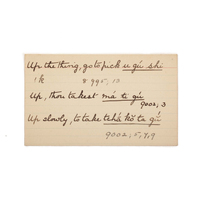 Up the thing, go to pick u gú shi
8995, 10
Up, thou takest má ti gú
9002, 3
Up slowly, to take tshá kö ta gú
9002, 5, 7, 9